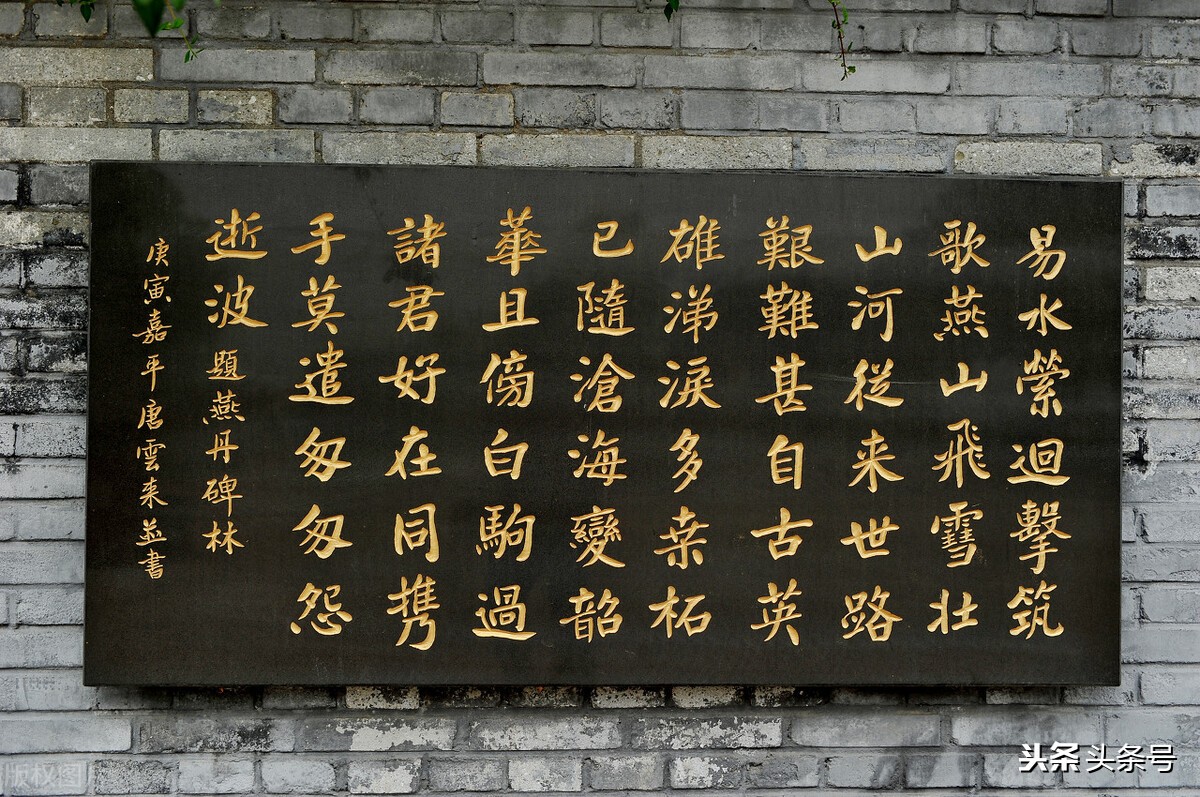 易水縈迴擊筑
歌燕山飛雪壮
山河從来世路
艱難甚自古英
雄涕淚多桒柘
已隨滄海變韶
華且傍白駒過
諸君好在同携
手莫遣匆匆怨
逝波 題燕丹碑林
庚寅嘉平唐雲来並書
头条 头条号
版权图